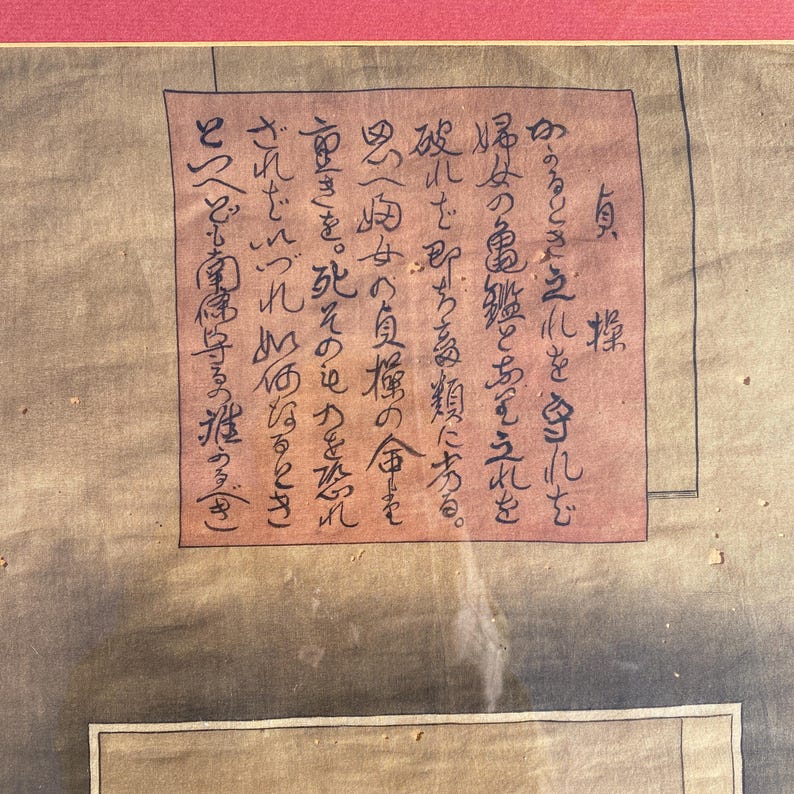 貞操
かゝるとき之れを守れば
婦女の亀鑑となり之れを
破れば即ち畜類に劣る。
思へ婦女の貞操の命
重きを。死そのものを恐れ
ざればいづれ如何なるとき
といへども南條